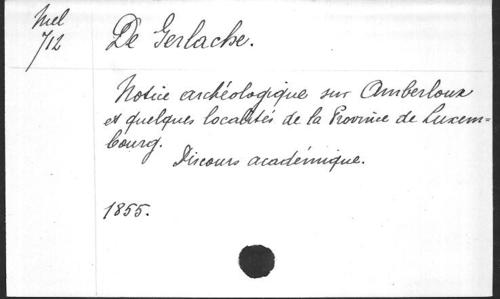 Mel
712
De Gerlache.
Notice archéologique sur Amberloux
et quelques localités de la Province de Luxem-
bourg.
Discours académique.
1855.